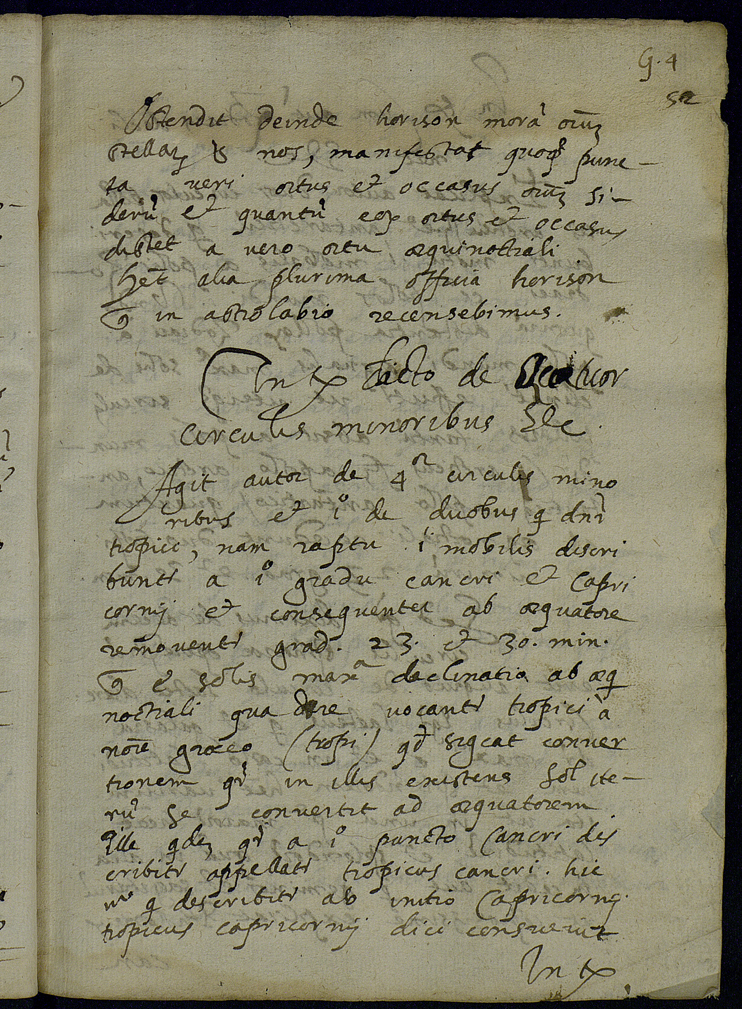 G. 4
52
Ostendit deinde horison morā oīuȝ
stellaꝝ & nos, manifestat quoqȝ punc—
ta veri ortus et occasus oīuȝ si—
derū et quantū eoꝝ ortus et occasus
distet a vero ortu æquinoctiali
hēt alia plurima officia horison
in astrolabio recensebimus.
In tx Dicto de Quatuor
circulis minoribus Hec
Agit autor de 4or circulis mino
ribus et io de duobus q dnr
tropici, nam raptu i mobilis descri
buntr a io gradu cancri et Capri
cornij et consequenter ab æquatore
removentr grad. 23. et 30. min.
e solis maxa declinatio ab æq
noctiali qua dere vocantr tropici a
noīe græco (tropi) qd sigcat conver
tionem qr in illis existens sol ite—
rū se convertit ad æquatorem
ille qdeȝ qr a io puncto Cancri des
cribitr appellatr tropicus cancri. hic
vo q describitr ab initio Capricornij
tropicus capricornij dici consuevit
In tx